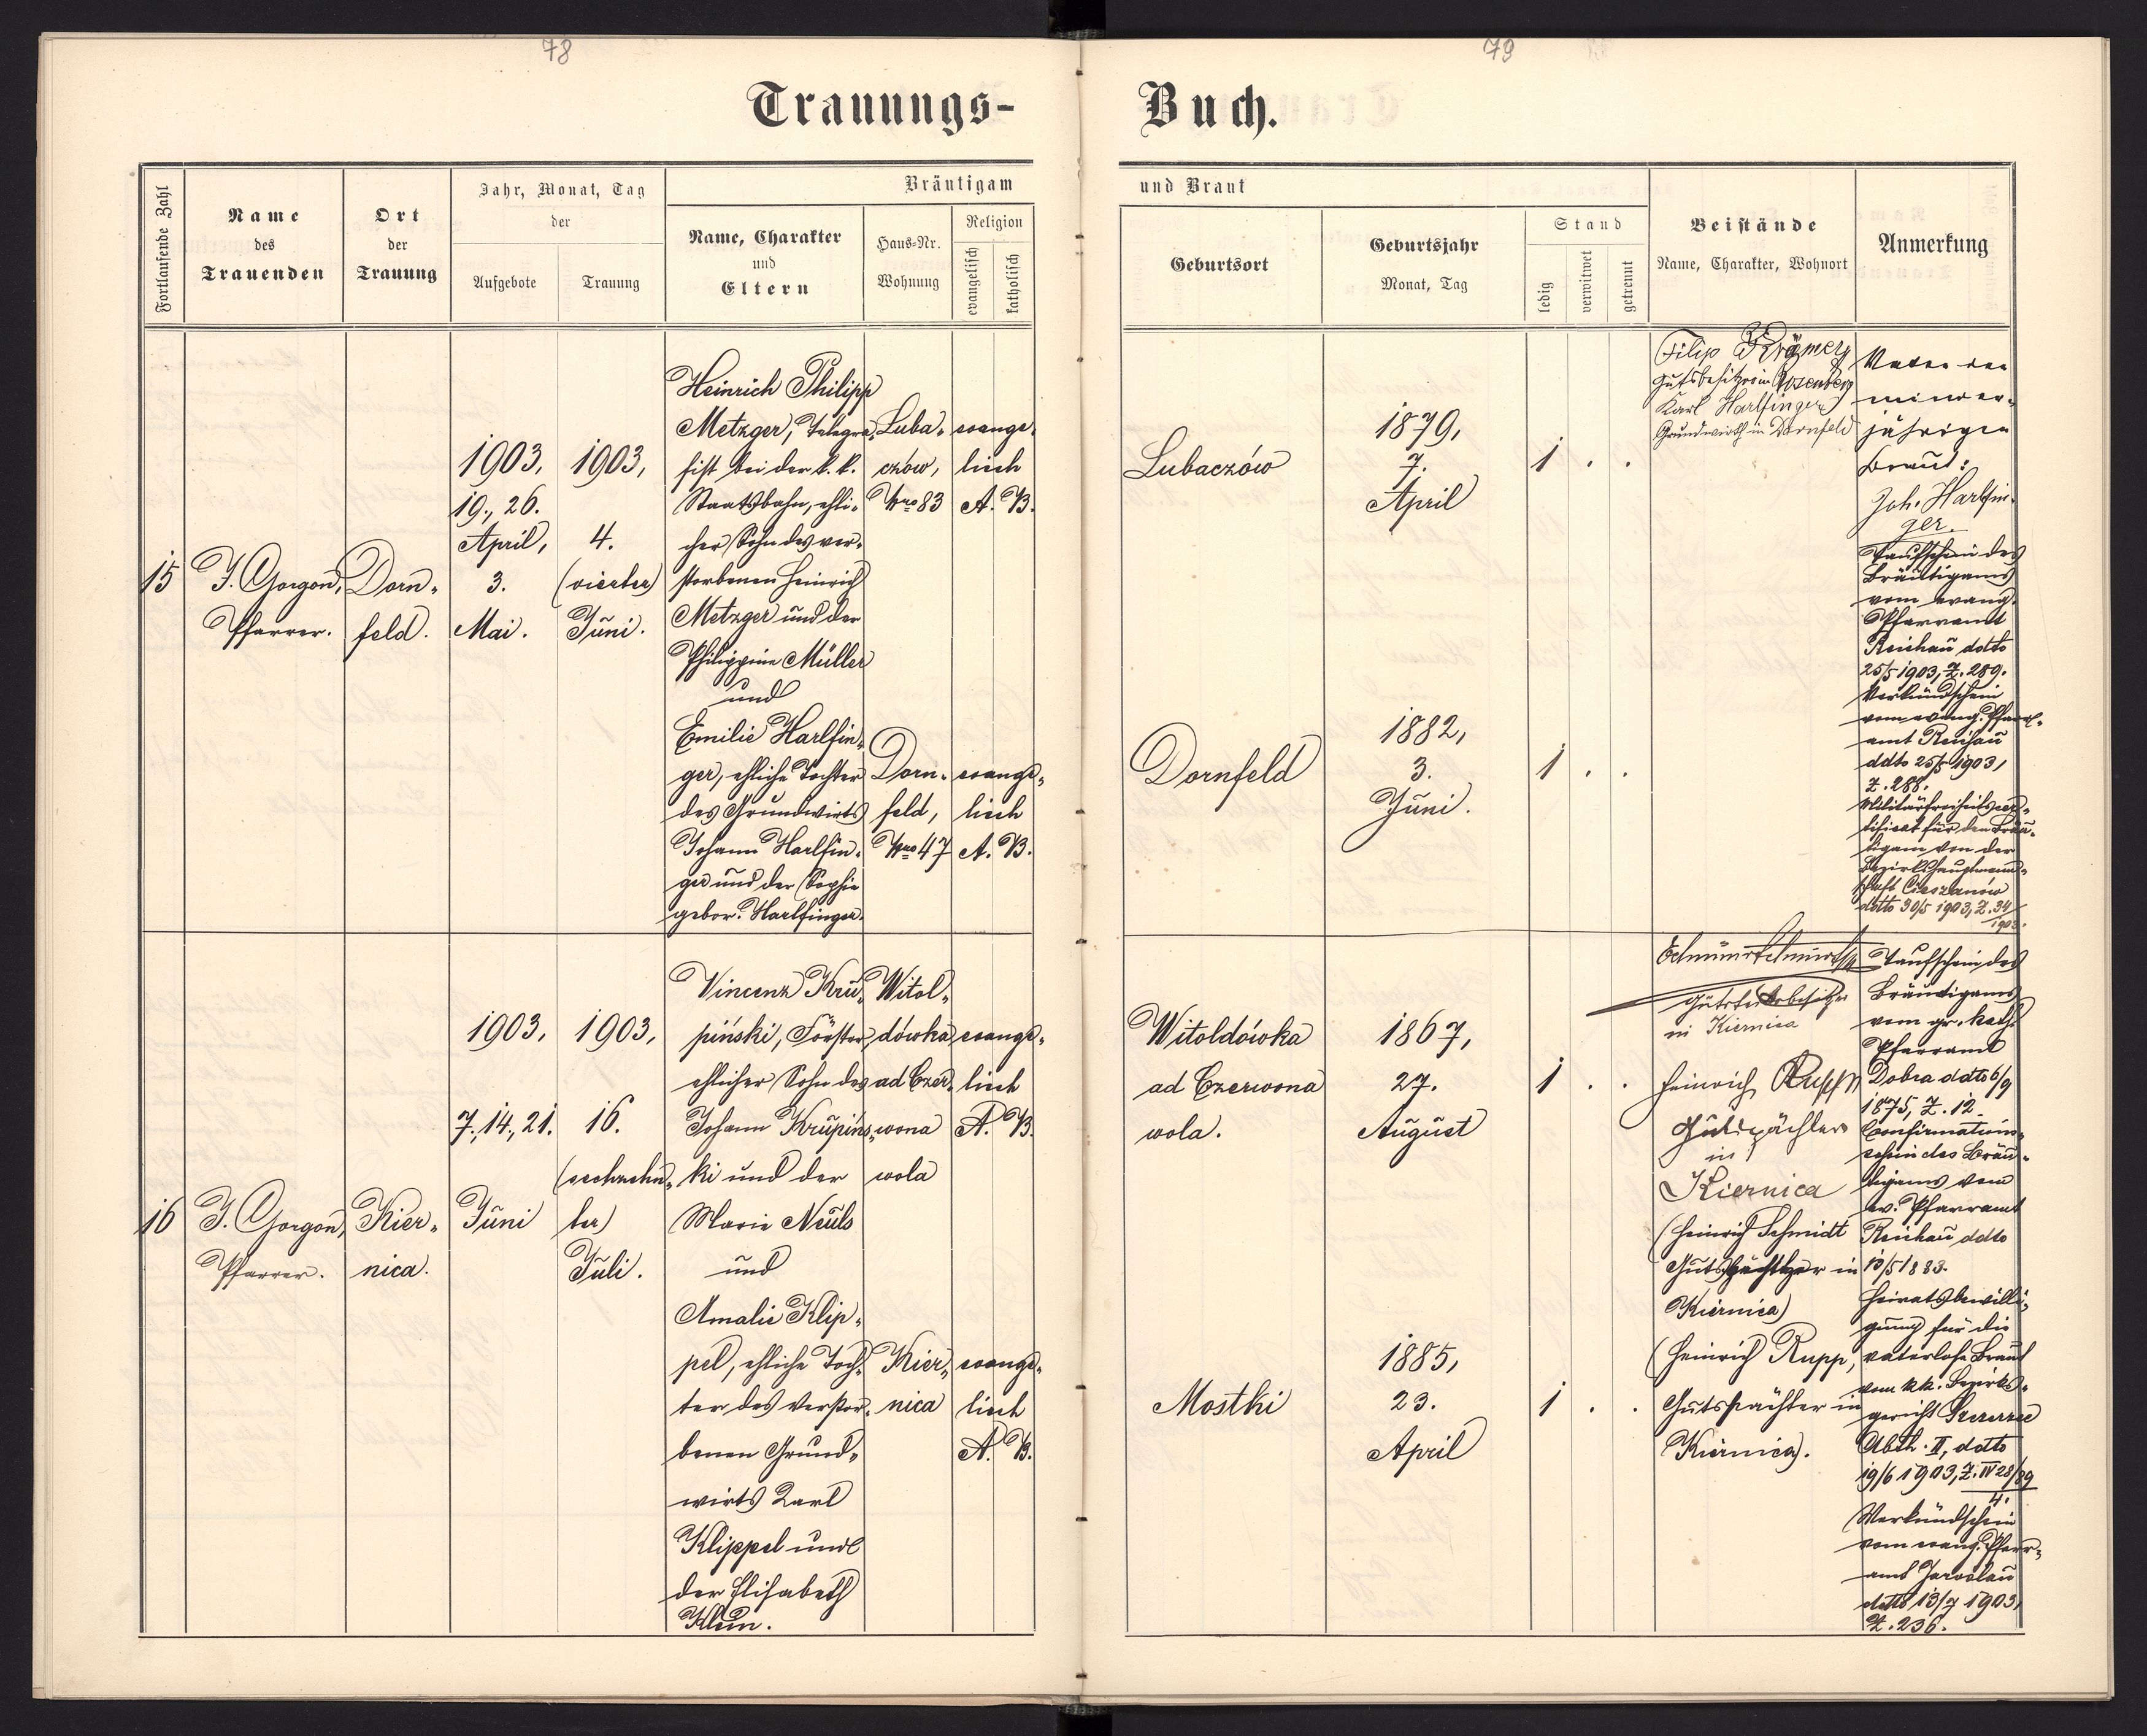 78
79
Trauungs-
Buch.
Fortlaufende Zahl
Name
des
Trauenden
Ort
der
Trauung
Jahr, Monat, Tag
der
Aufgebote
Trauung
Bräutigam
Name, Charakter
und
Eltern
Haus-Nr.
Wohnung
Religion
evangelisch
katholisch
und Braut
Geburtsort
Geburtsjahr
Monat, Tag
Stand
ledig
verwitwet
getrennt
Beistände
Name, Charakter, Wohnort
Anmerkung
15
J. Gorgon,
Pfarrer.
Dorn-
feld.
1903,
19., 26.
April,
3.
Mai.
1903,
4.
(vierter)
Juni.
Heinrich Philipp
Metzger, Telegra-
fist bei der k. k.
Staatsbahn, ehli-
cher Sohn des ver-
storbenen Heinrich
Metzger und der
Philippine Müller
und
Emilie Harlfin-
ger, ehliche Tochter
des Grundwirts
Johann Harlfin-
ger und der Sophie
gebor. Harlfinger.
Luba-
czów,
Nro 83
evange-
lisch
A. B.
Dorn-
feld,
Nro 47
evange-
lisch
A. B.
Lubaczów
1879,
7.
April
1 . .
Dornfeld
1882,
3.
Juni.
1 . .
Filip
Gutsbesitzer in
Karl Harlfinger
Grundwirth in Dornfeld
Vater der
minder-
jährigen
Braut:
Joh. Harlfin-
ger.
Taufschein des
Bräutigams
vom evang.
Pfarramt
Reichau ddto
25/5 1903, Z. 289.
Verkündschein
vom evang. Pfarr-
amt Reichau
ddto 25/5 1903,
Z. 288.
Militärfreiheitscer-
tificat für den Bräu-
tigam von der
Bezirkshauptmann-
schaft Cieszanów
ddto 30/5 1903, Z. 34/
1903.
16
J. Gorgon,
Pfarrer.
Kier-
nica.
1903,
7., 14., 21.
Juni
1903,
16.
(sechzehn-
ter)
Juli.
Vincenz Kru-
piński, Förster,
ehlicher Sohn des
Johann Krupińs-
ki und der
Marie Neuls
und
Amalie Klip-
pel, ehliche Toch-
ter des verstor-
benen Grund-
wirts Karl
Klippel und
der Elisabeth
Klein.
Witol-
dówka
ad Czer-
wona
wola
evange-
lisch
A. B.
Kier-
nica
evange-
lisch
A. B.
Witoldówka
ad Czerwona
wola.
1867,
27.
August
1 . .
Mostki
1885,
23.
April
1 . .
in Kiernica
Heinrich Rupp
Gutspächter
in
Kiernica
(Heinrich Schmidt
Gutspächter in
Kiernica)
(Heinrich Rupp,
Gutspächter in
Kiernica).
Taufschein des
Bräutigams
vom gr. kath.
Pfarramt
Dobra ddto 6/9
1875, Z. 12.
Confirmations-
schein des Bräu-
tigams vom
ev. Pfarramt
Reichau ddto
13/5 1883.
Heiratsbewilli-
gung für die
vaterlose Braut
vom k.k. Bezirks-
gericht Szczerzec
Abth. II, ddto
19/6 1903, Z. IV 28/89
4.
Verkündschein
vom evang. Pfarr-
amt Jaroslau
ddto 13/7 1903,
Z. 236.